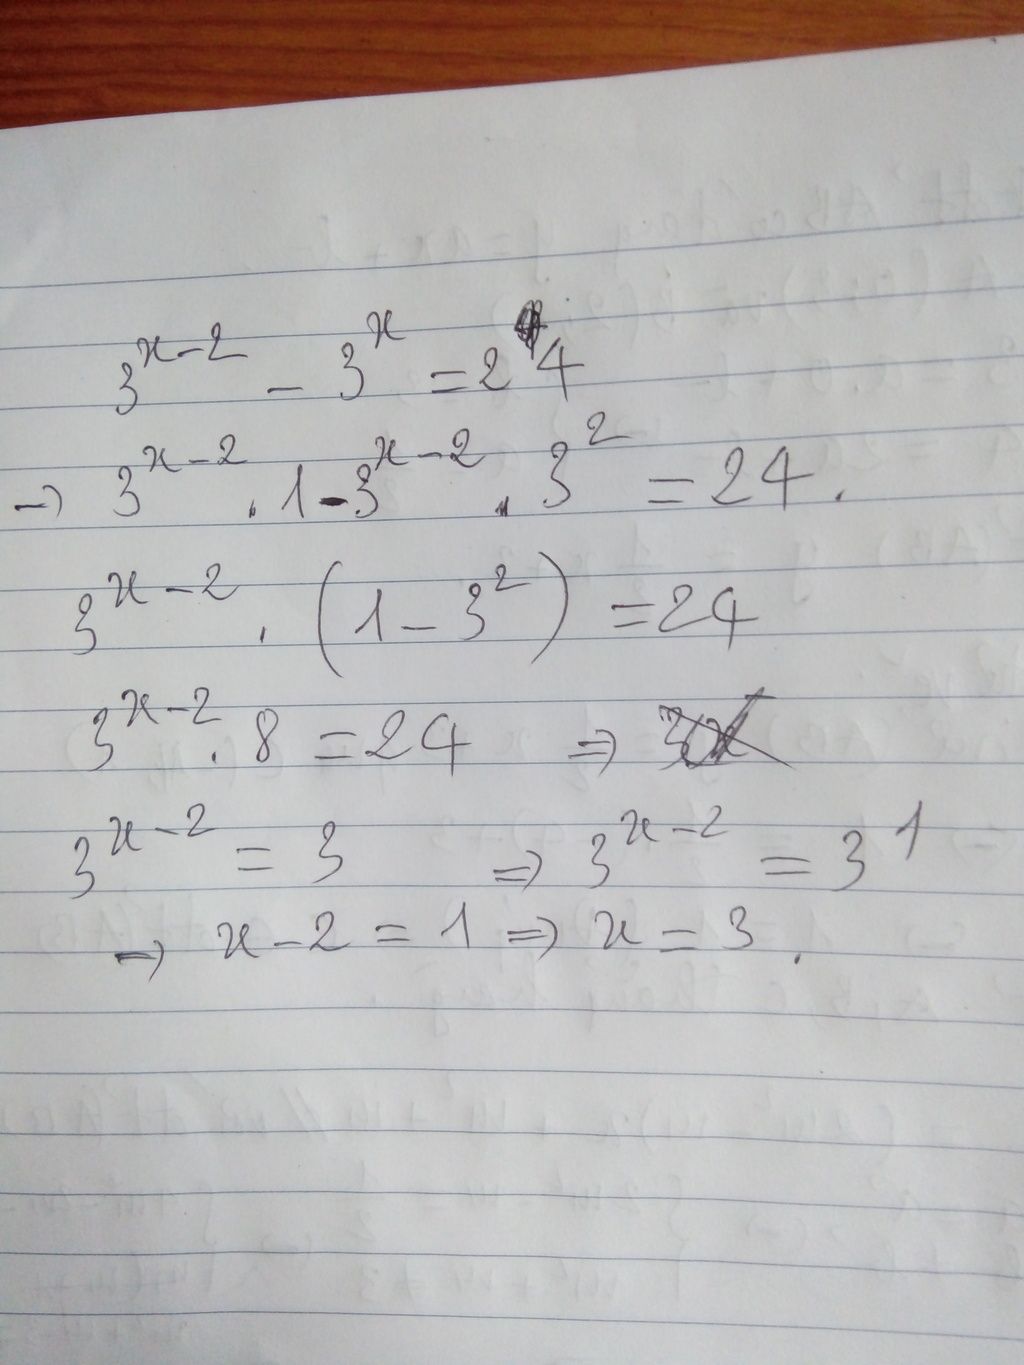 3^{x-2} - 3^x = 24
→ 3^{x-2} . 1 - 3^{x-2} . 3^2 = 24.
3^{x-2} . (1 - 3^2) = 24
3^{x-2} . 8 = 24 ⇒
3^{x-2} = 3 ⇒ 3^{x-2} = 3^1
→ x - 2 = 1 ⇒ x = 3.